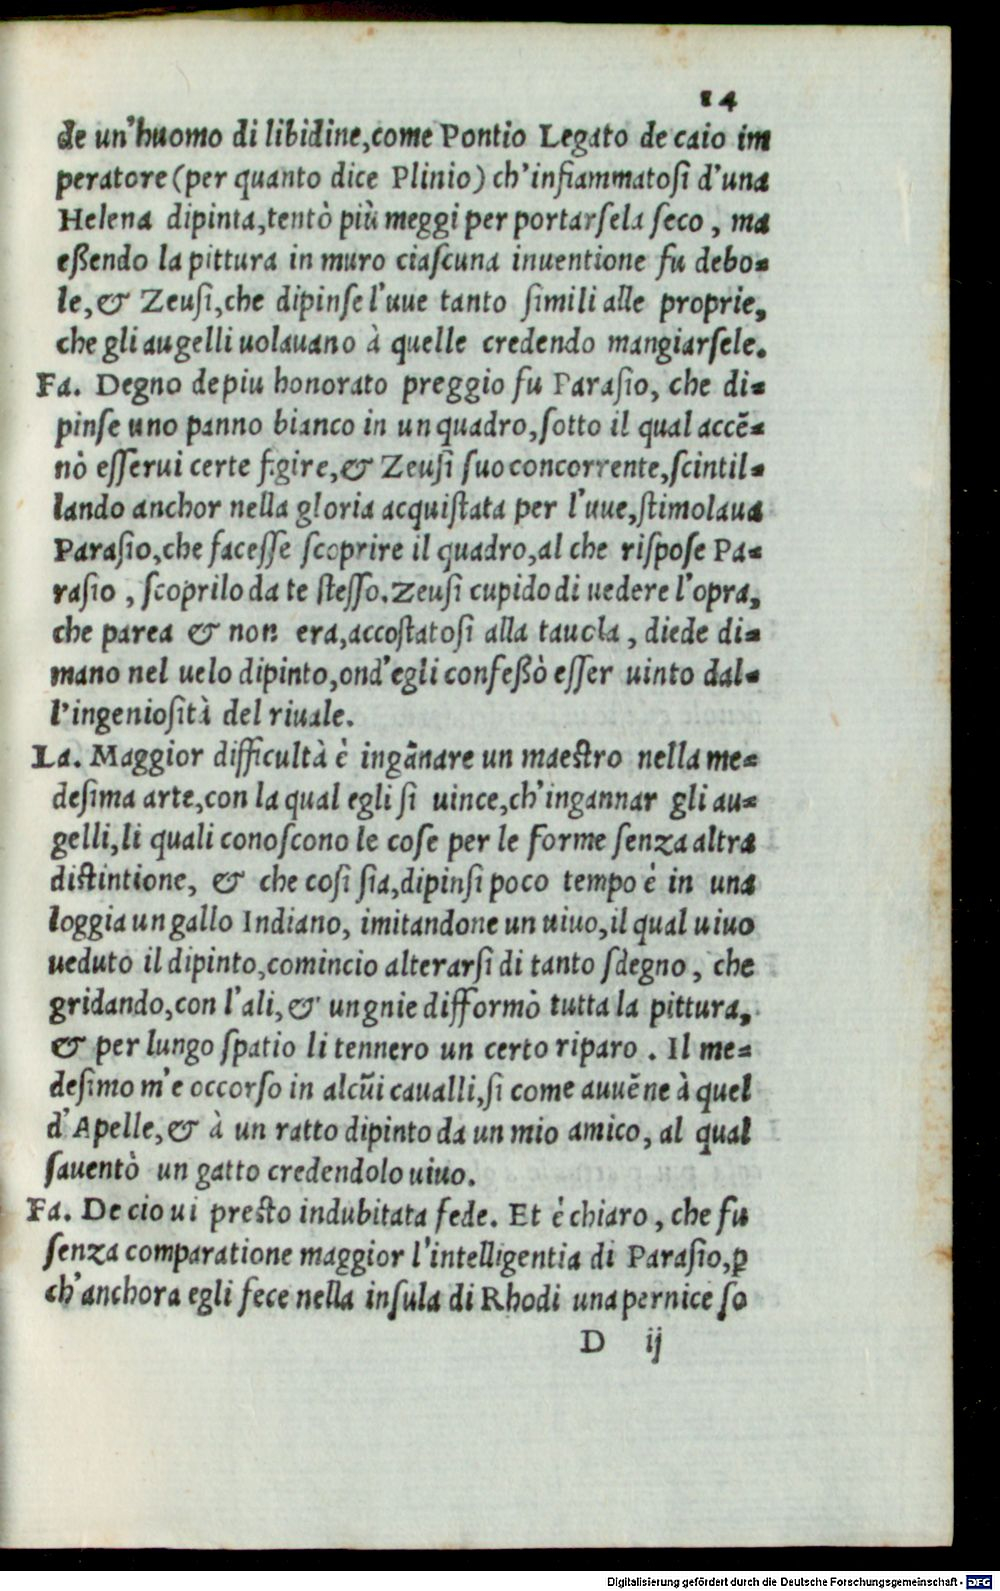 14
de un'huomo di libidine,come Pontio Legato de caio im
peratore (per quanto dice Plinio) ch'infiammatosi d'una
Helena dipinta,tentò più meggi per portarsela seco, ma
eßendo la pittura in muro ciascuna inuentione fu debo=
le,& Zeusi,che dipinse l'uue tanto simili alle proprie,
che gli augelli uolauano à quelle credendo mangiarsele.
Fa. Degno de piu honorato preggio fu Parasio, che di=
pinse uno panno bianco in un quadro,sotto il qual accē=
nò esserui certe figire,& Zeusi suo concorrente,scintil=
lando anchor nella gloria acquistata per l'uue,stimolaua
Parasio,che facesse scoprire il quadro,al che rispose Pa=
rasio, scoprilo da te stesso.Zeusi cupido di uedere l'opra,
che parea & non era,accostatosi alla tauola, diede di=
mano nel uelo dipinto,ond'egli confeßò esser uinto dal=
l'ingeniosità del riuale.
La. Maggior difficultà è ingãnare un maestro nella me=
desima arte,con la qual egli si uince,ch'ingannar gli au=
gelli,li quali conoscono le cose per le forme senza altra
distintione, & che cosi sia,dipinsi poco tempo è in una
loggia un gallo Indiano, imitandone un uiuo,il qual uiuo
ueduto il dipinto,comincio alterarsi di tanto sdegno, che
gridando,con l'ali,& ungnie difformò tutta la pittura,
& per lungo spatio li tennero un certo riparo. Il me=
desimo m'e occorso in alcũi caualli,si come auuēne à quel
d'Apelle,& à un ratto dipinto da un mio amico, al qual
sauentò un gatto credendolo uiuo.
Fa. De cio ui presto indubitata fede. Et è chiaro, che fu
senza comparatione maggior l'intelligentia di Parasio,ꝑ
ch'anchora egli fece nella insula di Rhodi una pernice so
D ij
Digitalisierung gefördert durch die Deutsche Forschungsgemeinschaft - DFG